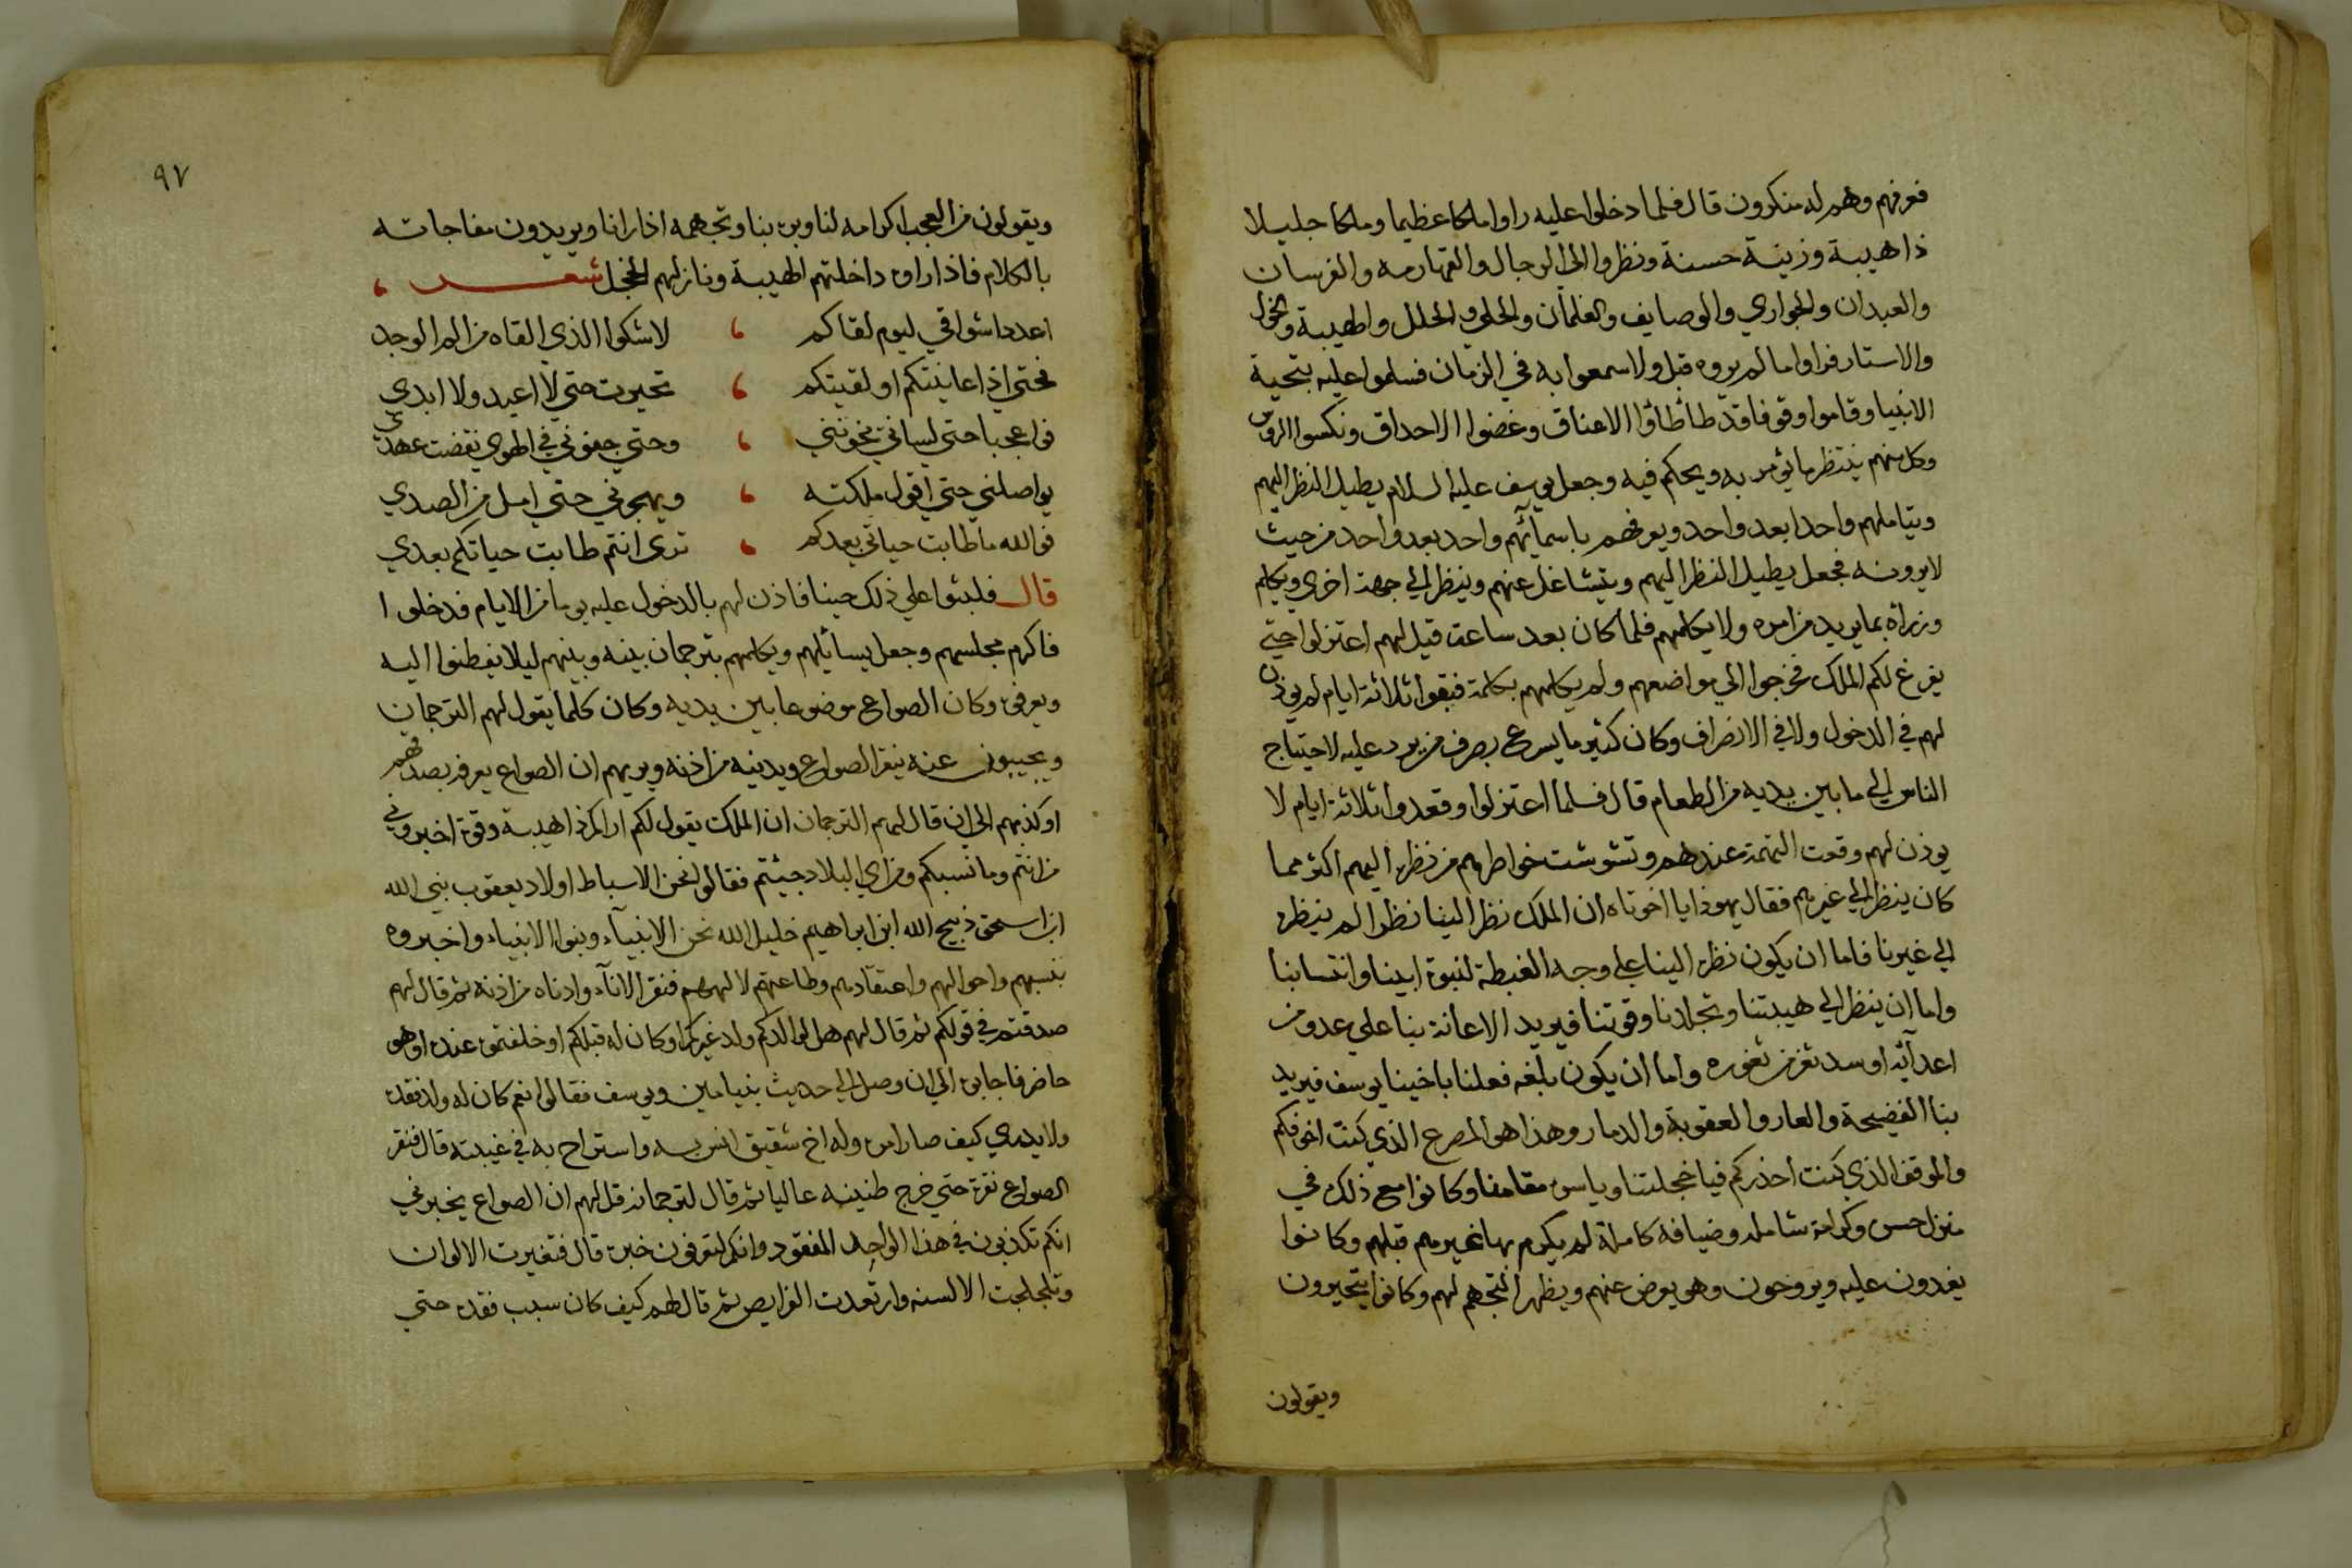 فعرفهم وهم له منكرون قال فلما دخلوا عليه راوا ملكا عظيما وملكا جليلا
ذا هيبة وزينة حسنة ونظروا الي الرجال والقهارمه والفرسان
والعبدان والجواري والوصايف والغلمان والحلي والحلل والهيبة والخول
والاستار فراوا مالم يروه قبل ولا سمعوا به في الزمان فسلموا عليه بتحية
الانبيا وقاموا وقوفا قد طأطأوا الاعناق وغضوا الاحداق ونكسوا الروس
وكل منهم ينتظر ما يؤمر به ويحكم فيه وجعل يوسف عليه السلام يطيل النظر اليهم
ويتاملهم واحدا بعد واحد ويعرفهم باسمآئهم واحد بعد واحد من حيث
لا يرونه فجعل يطيل النظر اليهم ويتشاغل عنهم وينظر الي جهة اخري ويكلم
وزراه بما يريد من امره ولا يكلمهم فلما كان بعد ساعة قيل لهم اعتزلوا حتي
يفرغ لكم الملك فخرجوا الي مواضعهم ولم يكلمهم بكلمة فبقوا ثلاثة ايام لم يوذن
لهم في الدخول ولا في الانصراف وكان كثير ما يسرع بصرف من يرد عليه لاحتياج
الناس الي ما بين يديه من الطعام قال فلما اعتزلوا وقعدوا ثلاثة ايام لا
يوذن لهم وقعت التهمة عندهم وتشوشت خواطرهم من نظره اليهم اكثر مما
كان ينظر الي غيرهم فقال يهوذا يا اخوتاه ان الملك نظر الينا نظرا لم ينظره
الي غيرنا فاما ان يكون نظره الينا علي وجه الغبطة لنبوة ابينا وانتسابنا
واما ان ينظر الي هيبتنا وتجلدنا وقوتنا فيريد الاعانة بنا علي عدو من
اعدآئه او سد ثغر من ثغوره واما ان يكون بلغه فعلنا باخينا يوسف فيريد
بنا الفضيحة والعار والعقوبة والدمار وهذا هو المصرع الذي كنت اخوفكم
والموقف الذي كنت احذركم فيا خجلتنا وياسو مقامنا وكانوا مع ذلك في
منزل حسن وكرامة شاملة وضيافة كاملة لم يكرم بها غيرهم قبلهم وكانوا
يغدون عليه ويروحون وهو يعرض عنهم ويظهر التجهم لهم وكانوا يتحيرون
ويقولون
٩٧
ويقولون من العجب اكرامه لنا وبره بنا وتجهمه اذا رانا ويريدون مفاجاته
بالكلام فاذا راوه داخلتهم الهيبة ونازلهم الخجل شعر
اعدد اشواقي ليوم لقاكم ، لاشكوا الذي القاه من الم الوجد
فحتي اذا عاينتكم او لقيتكم ، تحيرت حتي لا اعيد ولا ابدي
فواعجبا حتي لساني تخونني ، وحتي جفوني في الهوي نقضت عهدي
يواصلني حتي اقول ملكته ، ويهجرني حتي امل من الصدي
فوالله ما طابت حياتي بعدكم ، تري انتم طابت حياتكم بعدي
قال فلبثوا علي ذلك حينا فاذن لهم بالدخول عليه يوما من الايام فدخلوا
فاكرم مجلسهم وجعل يسائلهم ويكلمهم بترجمان بينه وبينهم ليلا يفطنوا اليه
ويعرفوه وكان الصواع موضوعا بين يديه وكان كلما يقول لهم الترجمان
ويجيبون عنه ينقر الصواع ويدنيه من اذنه ويريهم ان الصواع يعرفه بصدقهم
او كذبهم الي ان قال لهم الترجمان ان الملك يقول لكم اراكم ذا هيبة وقوة اخبروني
من انتم وما نسبكم ومن اي البلاد جيئتم فقالوا نحن الاسباط اولاد يعقوب نبي الله
ابن اسحق ذبيح الله ابن ابراهيم خليل الله نحن الانبيآء وبنوا الانبياء واخبروه
بنسبهم واحوالهم واعتقادهم وطاعتهم لالههم فنقر الانآء وادناه من اذنه ثم قال لهم
صدقتم في قولكم ثم قال لهم هل لوالدكم ولد غيركم او كان له قبلكم او خلفتموه عنده او هو
حاضر فاجابوه الي ان وصل الي حديث بنيامين ويوسف فقالوا نعم كان له ولد فقده
ولا يدري كيف صار امره وله اخ شقيق انس به واستراح به في غيبته قال فنقر
الصواع نقرة حتي خرج طنينه عاليا ثم قال لترجمانه قل لهم ان الصواع يخبرني
انكم تكذبون في هذا الواحد المفقود وانكم لتعرفون خبره قال فتغيرت الالوان
وتلجلجت الالسنه وارتعدت الفرايص ثم قال لهم كيف كان سبب فقده حتي